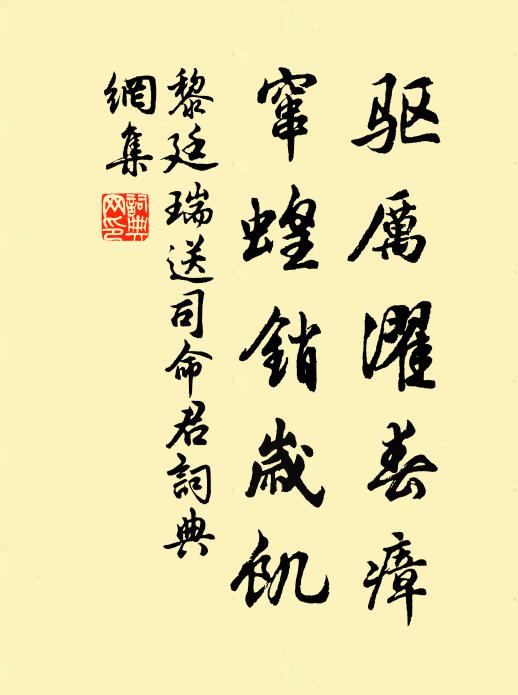 驱厲濯春瘴
窜蝗銷歲飢
黎廷瑞送司命君詞典
網集
詞典
网印